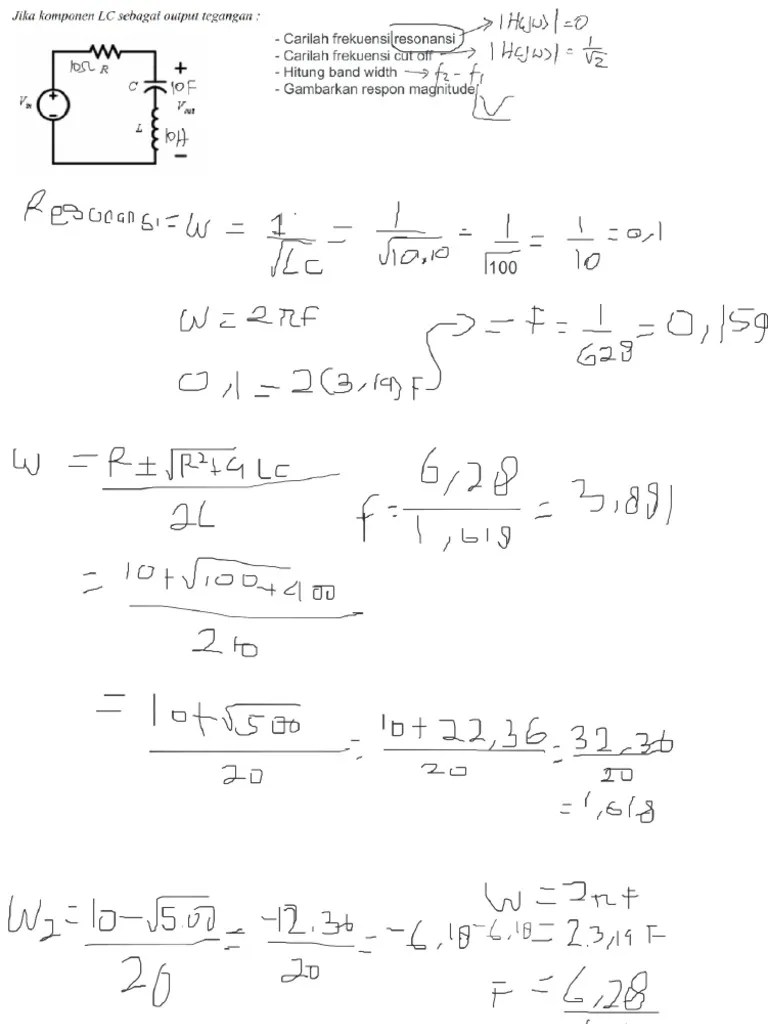 Jika komponen LC sebagai output tegangan :
- Carilah frekuensi resonansi → |H(jω)| = 0
- Carilah frekuensi cut off → |H(jω)| = 1/√2
- Hitung band width → f2 - f1
- Gambarkan respon magnitude
10Ω R
C 10F
+
Vin
Vout
L 10H
-
Resonansi = W = 1/√LC = 1/√10.10 = 1/√100 = 1/10 = 0,1
W = 2πF
0,1 = 2(3,14)F → = F = 1/628 = 0,159
W = R ± √R²+4LC / 2L
f = 6,28/1,618 = 3,881
= 10+√100+400 / 210
= 10+√500 / 20 = 10+22,36 / 20 = 32,36 / 20
= 1,618
W2 = 10-√500 / 20 = -12.36 / 20 = -6,18
W = 2πF
-6,18 = 2.3,14 F
F = 6,28